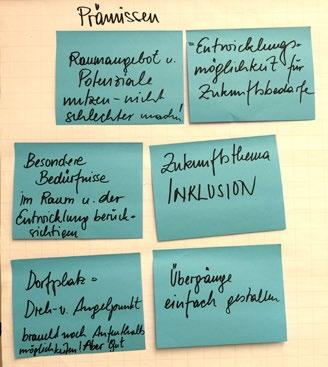 Prämissen
Raumangebot u.
Potenziale
nutzen - nicht
schlechter machen!
= Entwicklungs-
möglichkeit für
Zukunftsbedarfe
Besondere
Bedürfnisse
im Raum u. der
Entwicklung berück-
sichtigen
Zukunftsthema
INKLUSION
Dorfplatz =
Dreh- u. Angelpunkt
braucht noch Aufenthalts
möglichkeiten! Aber gut
Übergänge
einfach gestalten